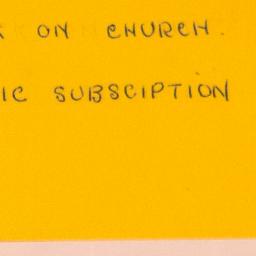 ON CHURCH.
IC SUBSCIPTION